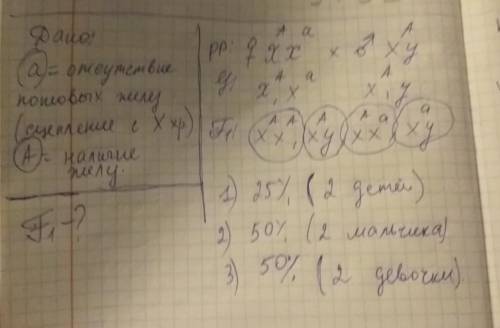 Дано:
a = отсутствие
потовых желу
(сцепление с X хр)
A = наличие
желу.
F₁ - ?
PP: ♀ XᴬXᵃ × ♂ XᴬY
g: Xᴬ, Xᵃ Xᴬ, Y
F₁: XᴬXᴬ, XᴬY, XᴬXᵃ, XᵃY
1) 25% (2 детей)
2) 50% (2 мальчика)
3) 50% (2 девочки).